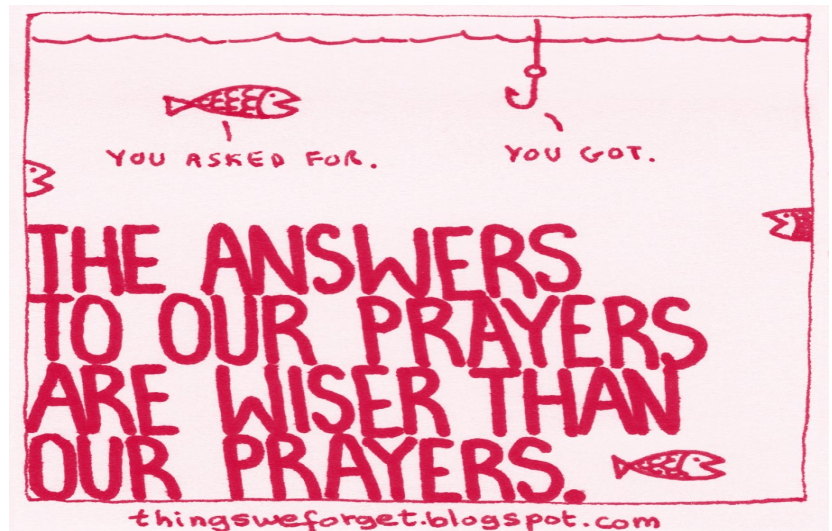 YOU ASKED FOR.
YOU GOT.
THE ANSWERS
TO OUR PRAYERS
ARE WISER THAN
OUR PRAYERS.
thingsweforget.blogspot.com